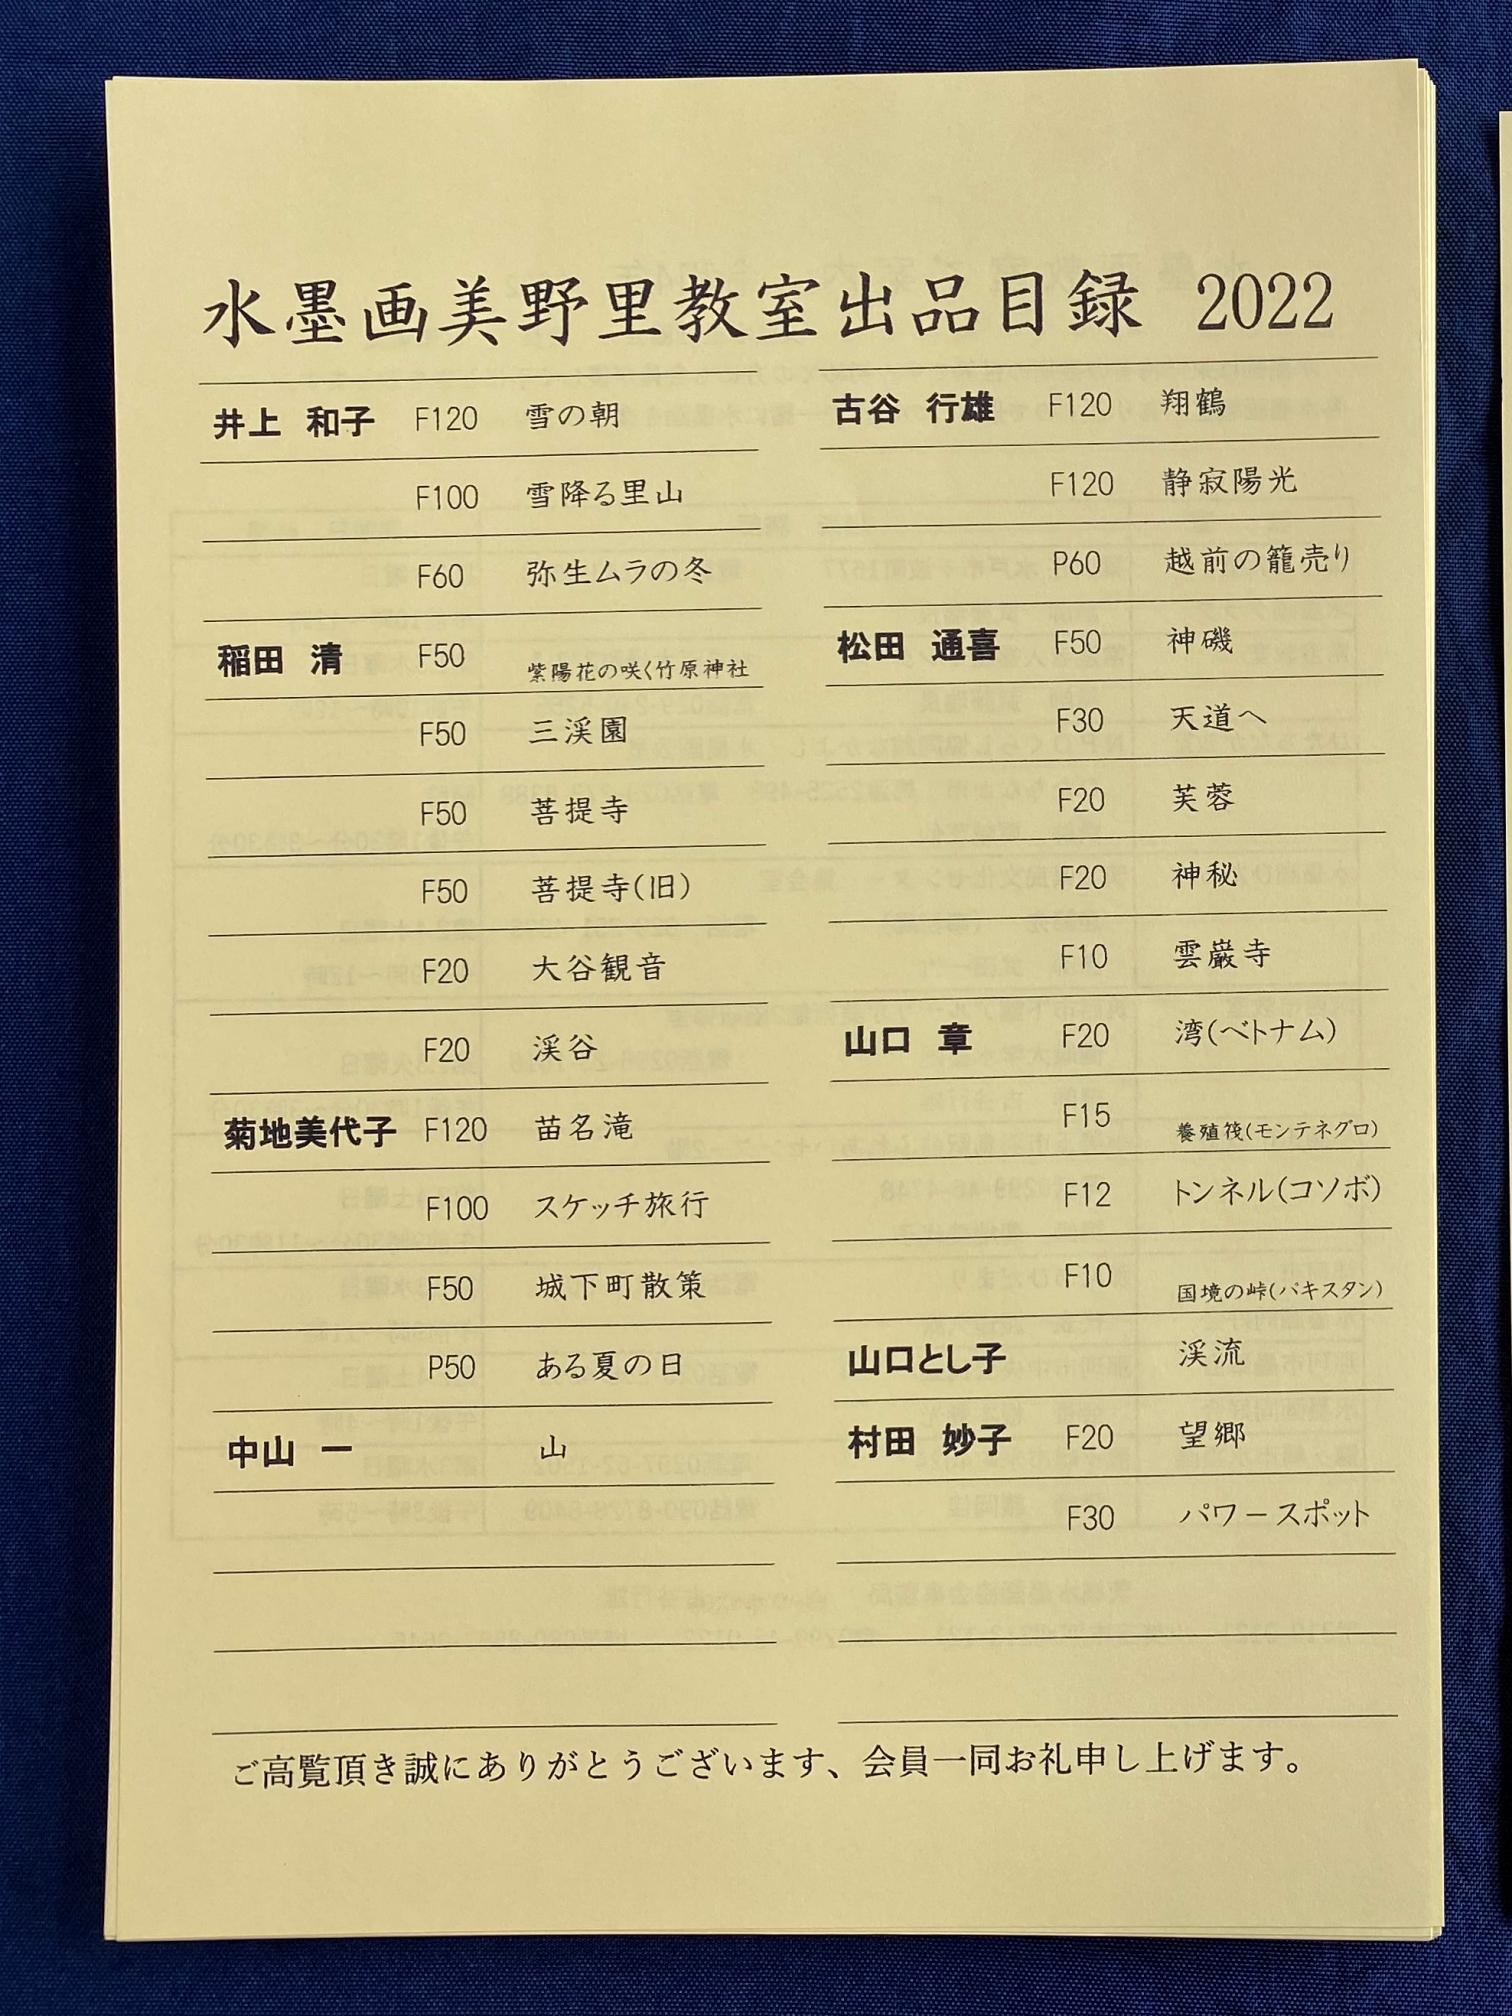 水墨画美野里教室出品目録 2022
井上 和子 F120 雪の朝
F100 雪降る里山
F60 弥生ムラの冬
稲田 清 F50 紫陽花の咲く竹原神社
F50 三渓園
F50 菩提寺
F50 菩提寺(旧)
F20 大谷観音
F20 渓谷
菊地美代子 F120 苗名滝
F100 スケッチ旅行
F50 城下町散策
P50 ある夏の日
中山 一 山
古谷 行雄 F120 翔鶴
F120 静寂陽光
P60 越前の籠売り
松田 通喜 F50 神磯
F30 天道へ
F20 芙蓉
F20 神秘
F10 雲巌寺
山口 章 F20 湾(ベトナム)
F15 養殖筏(モンテネグロ)
F12 トンネル(コソボ)
F10 国境の峠(パキスタン)
山口とし子 渓流
村田 妙子 F20 望郷
F30 パワースポット
ご高覧頂き誠にありがとうございます、会員一同お礼申し上げます。